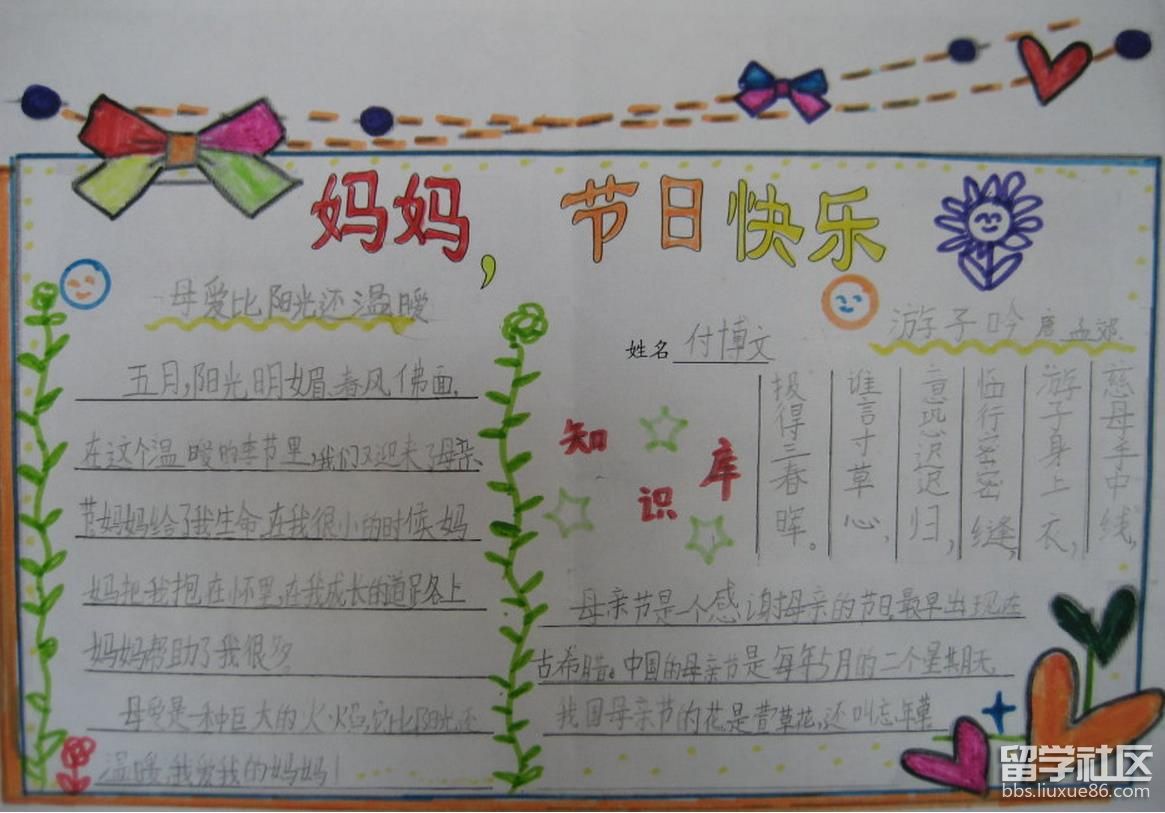 妈妈,节日快乐
母爱比阳光还温暖
五月,阳光明媚、春风佛面,
在这个温暖的季节里,我们又迎来了母亲
节妈妈给了我生命,在我很小的时侯,妈
妈把我抱在怀里,在我成长的道路上
妈妈帮助了我很多。
母爱是一种巨大的火焰,它比阳光还
温暖,我爱我的妈妈!
姓名 付博文
游子吟 唐 孟郊
慈母手中线,
游子身上衣,
临行密密缝,
意恐迟迟归,
谁言寸草心,
报得三春晖。
知识库
母亲节是一个感谢母亲的节日,最早出现在
古希腊。中国的母亲节是每年5月的二个星期天.
我国母亲节的花是萱草花,还叫忘年草
留学社区
bbs.liuxue86.com